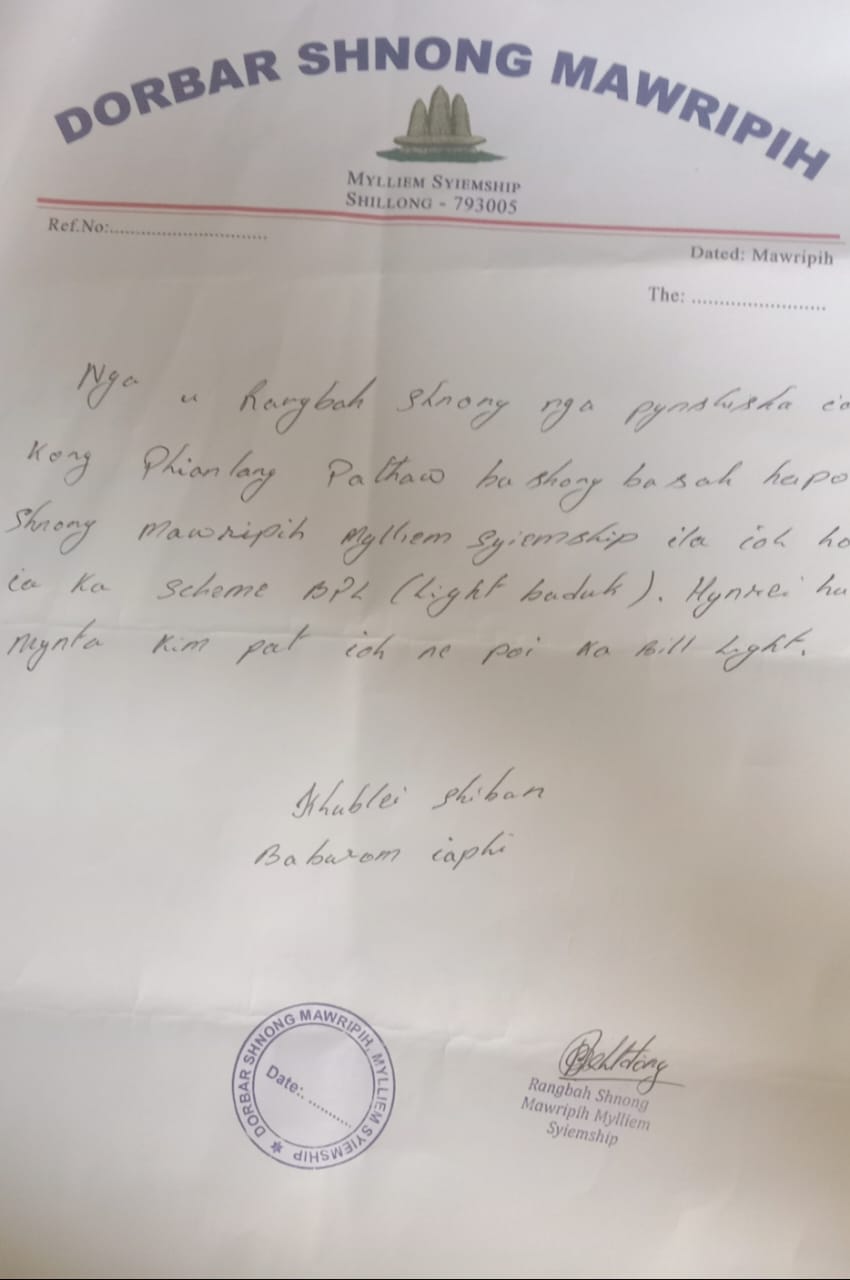 DORBAR SHNONG MAWRIPIH
MYLLIEM SYIEMSHIP
SHILLONG - 793005
Ref.No:..............................
Dated: Mawripih
The: ........................
Nga u Rangbah Shnong nga pynshisha ia
Kong Phianlang Pathaw ba shong basah hapo
Shnong Mawripih Mylliem Syiemship ila ioh ho
ia Ka Scheme BPL (Light baduk). Hynrei ha
Mynta Kim pat ioh ne poi Ka Bill Light.
Khublei Shiban
Baburom iaphi
DORBAR SHNONG MAWRIPIH, MYLLIEM SYIEMSHIP
Date:............
Rangbah Shnong
Mawripih Mylliem
Syiemship